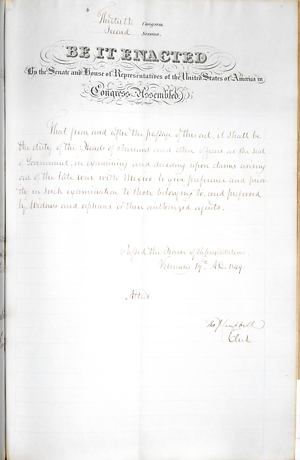 Thirtieth Congress
Second Session.
BE IT ENACTED
By the Senate and House of Representatives of the United States of America in
Congress Assembled,
That from and after the passage of this act, it shall be
the duty of the Heads of Bureaus and other officers at the seat
of Government, in examining and deciding upon claims arising
out of the late war with Mexico to give preference and prior-
ity in such examination to those belonging to, and preferred
by Widows and orphans or their authorized agents.
Passed the House of Representatives
February 19th AD. 1849
Attest
Tho. J. Campbell
Clerk